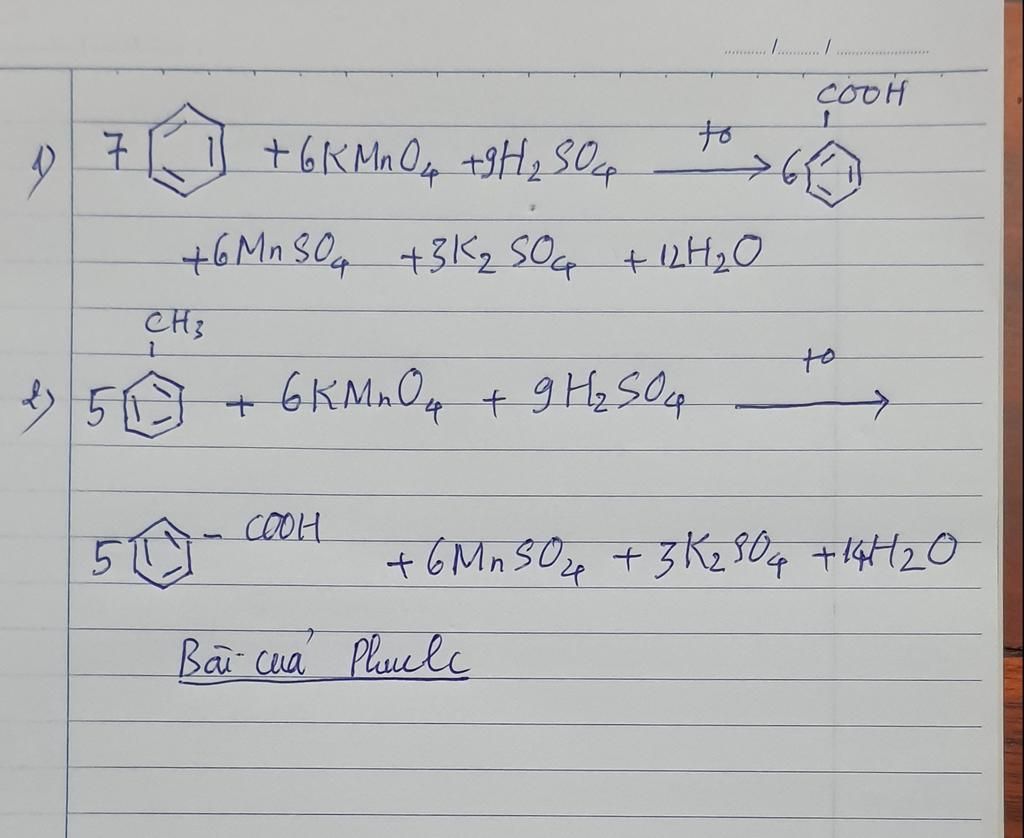 ...../...../.....
COOH
1) 7 + 6KMnO4 + 9H2SO4 to → 6
+ 6MnSO4 + 3K2SO4 + 12H2O
CH3
2) 5 + 6KMnO4 + 9H2SO4 to →
5 - COOH + 6MnSO4 + 3K2SO4 + 14H2O
Bài của